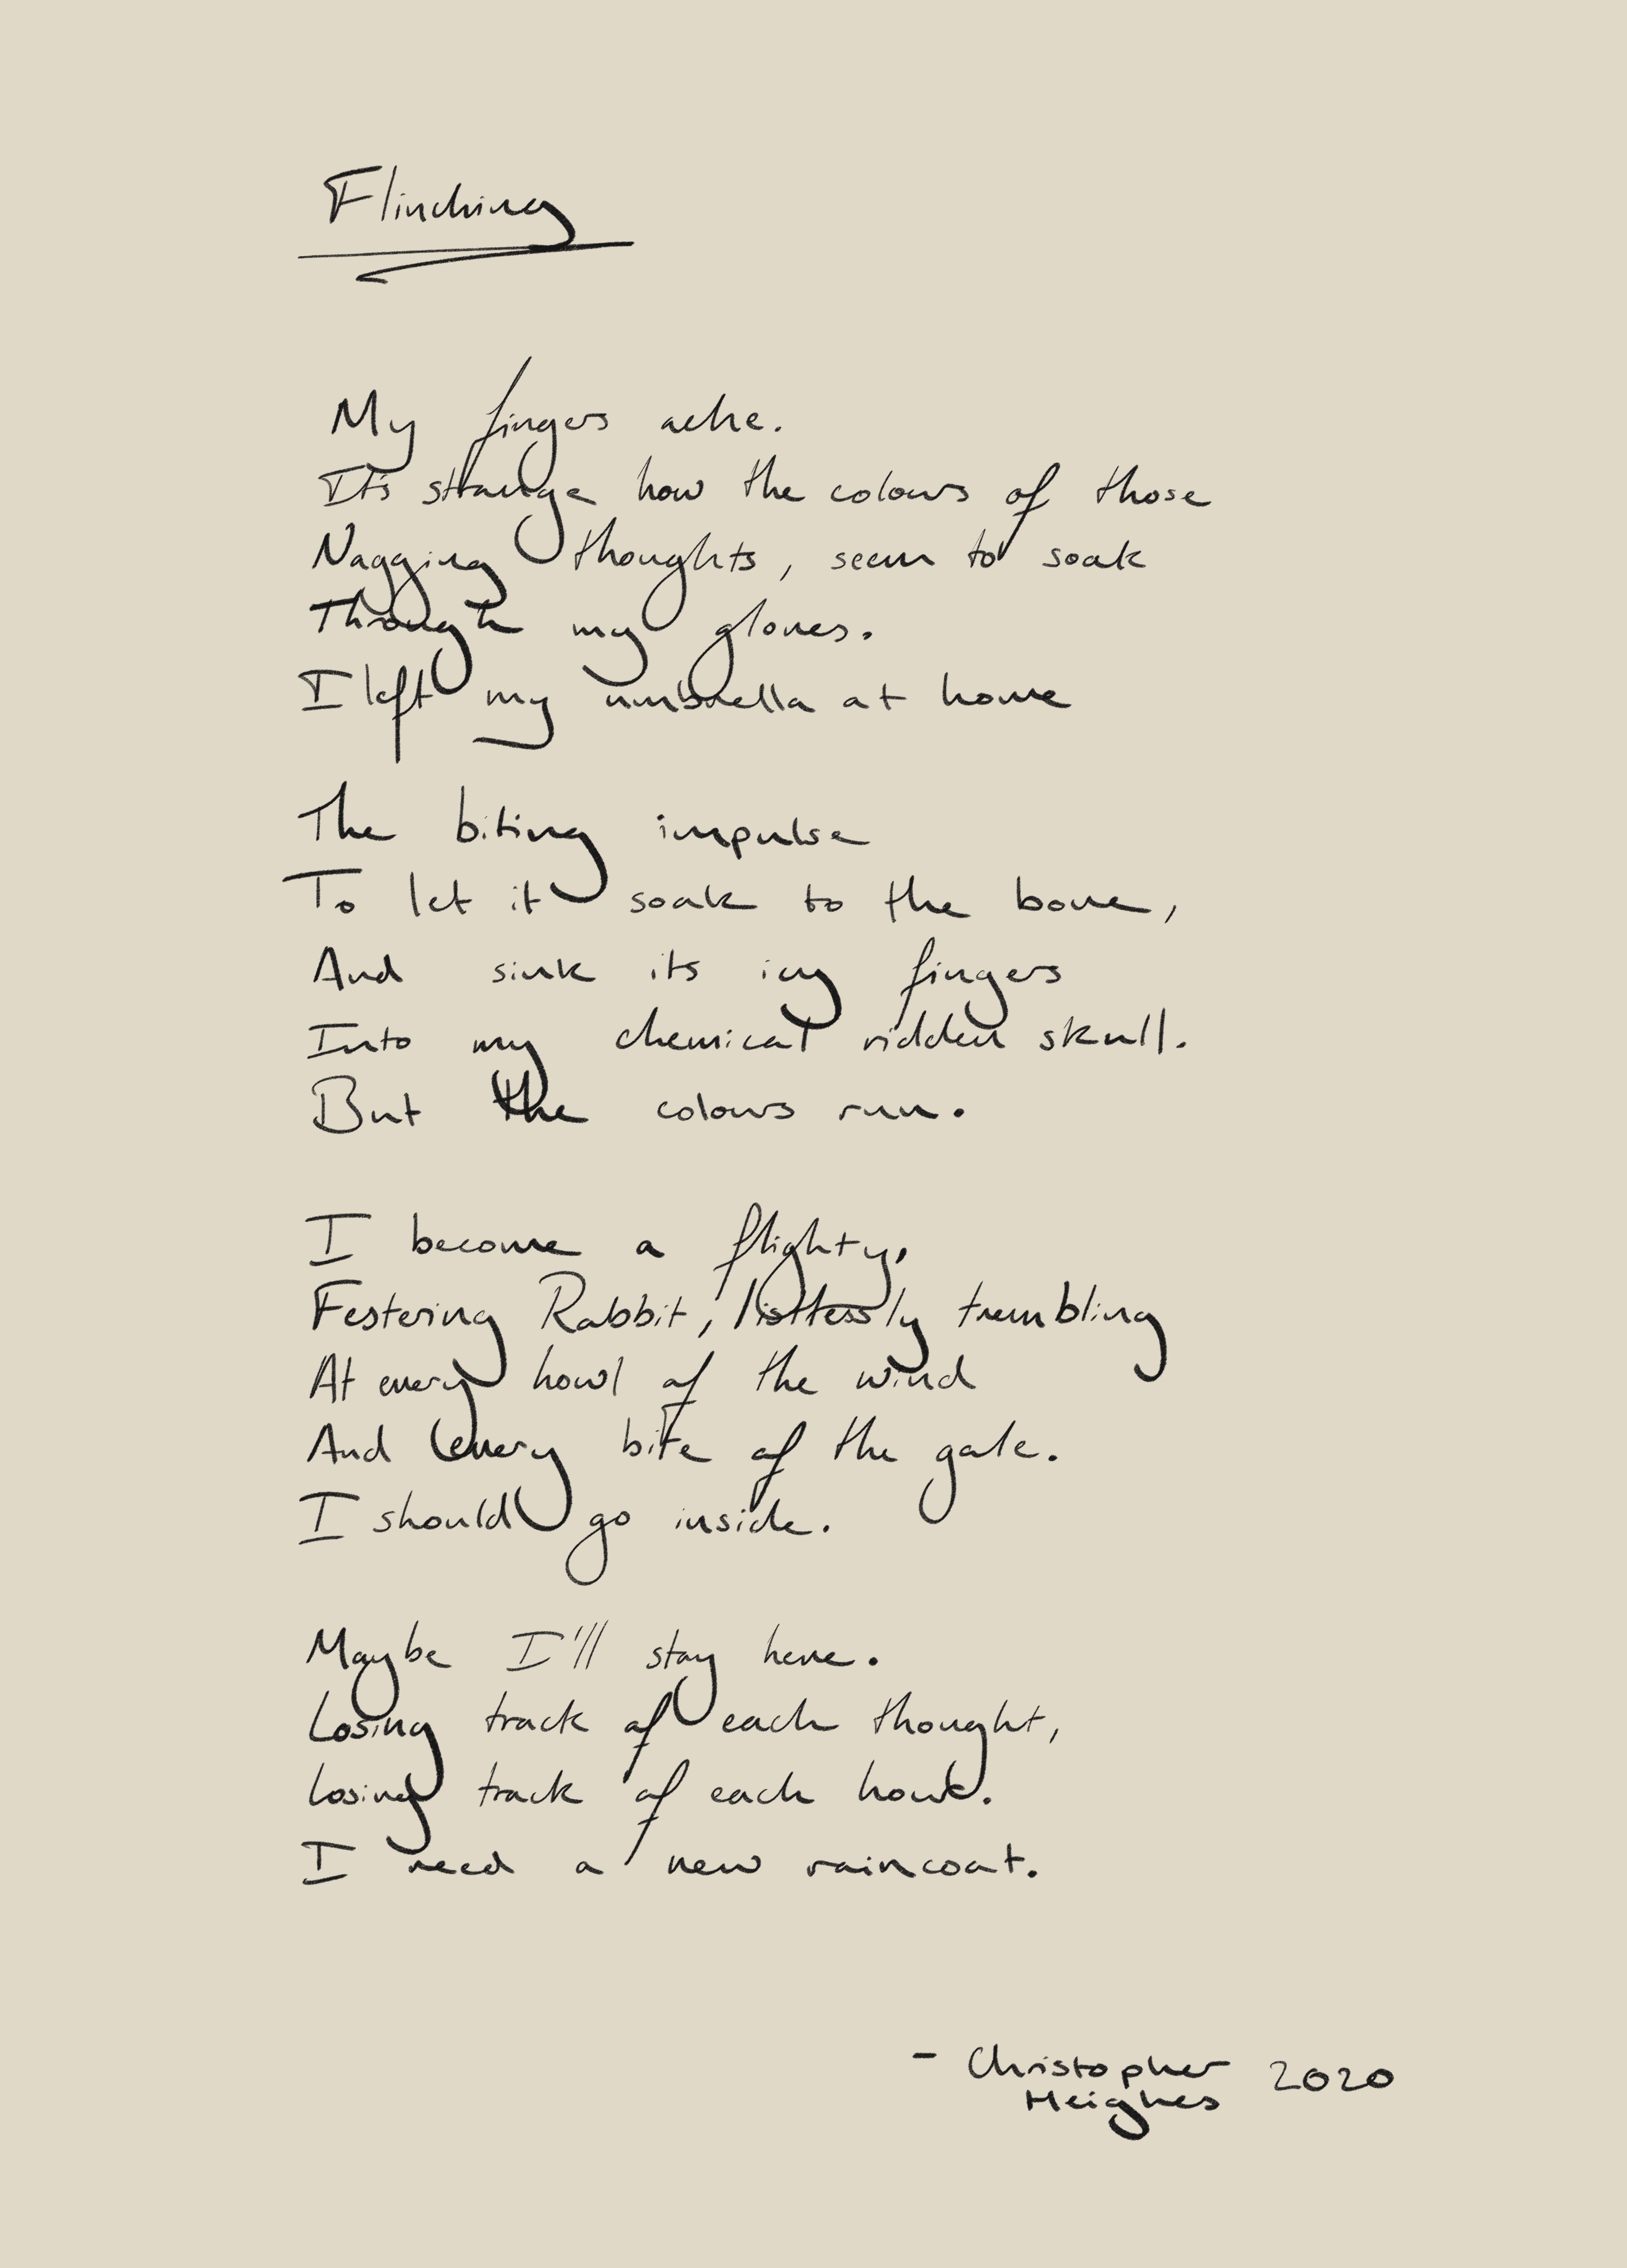 Flinching
My fingers ache.
It's strange how the colours of those
Nagging thoughts, seem to soak
Through my gloves.
I left my umbrella at home
The biting impulse
To let it soak to the bone,
And sink its icy fingers
Into my chemical ridden skull.
But the colours run.
I become a flighty,
Festering Rabbit, listlessly trembling
At every howl of the wind
And every bite of the gale.
I should go inside.
Maybe I'll stay here.
Losing track of each thought,
losing track of each
I need a new raincoat.
- Christopher 2020
Heighes